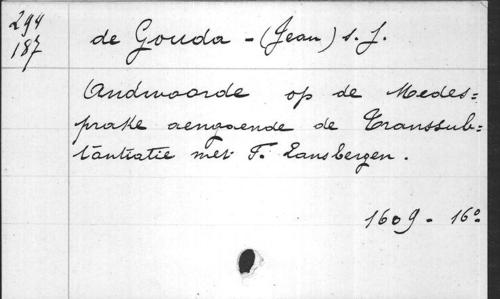 294
187
de Gouda - (Jean) s. J.
Andwoorde op de Medes=
prake aengaende de Transsub=
tantiatie met F. Lansbergen.
1609 - 16°